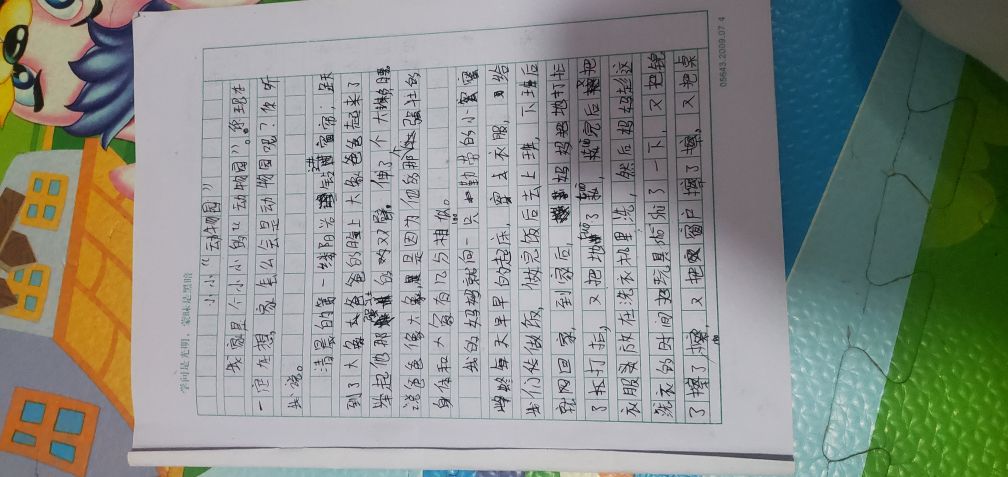 学问是光明，蒙昧是黑暗
小小“动物园”
我家是个小小的“动物园”。你现在
一定在想，家怎么会是动物园呢？你听
我说。
清晨的第一缕阳光透过窗帘，跃
到了大象爸爸的脸上大象爸爸起来了
举起他那强壮的双臂，伸了个大懒腰
说爸爸像大象，是因为他的那个强壮的
身体和大象有几与相似。
我的妈妈就向一只勤劳的小蜜
蜂每天早早的起床，穿去衣服，给
我们做饭，做完饭后去上班，下班后
就网回家，到家后，妈妈把地打扫
了扫打后，又把地了，完后把
衣服放在洗衣机里洗，然后妈妈趁这
洗衣的时间把玩具了一下，又把镜
了擦了擦，又把窗户擦了擦，又把桌
05643.2009.07.4